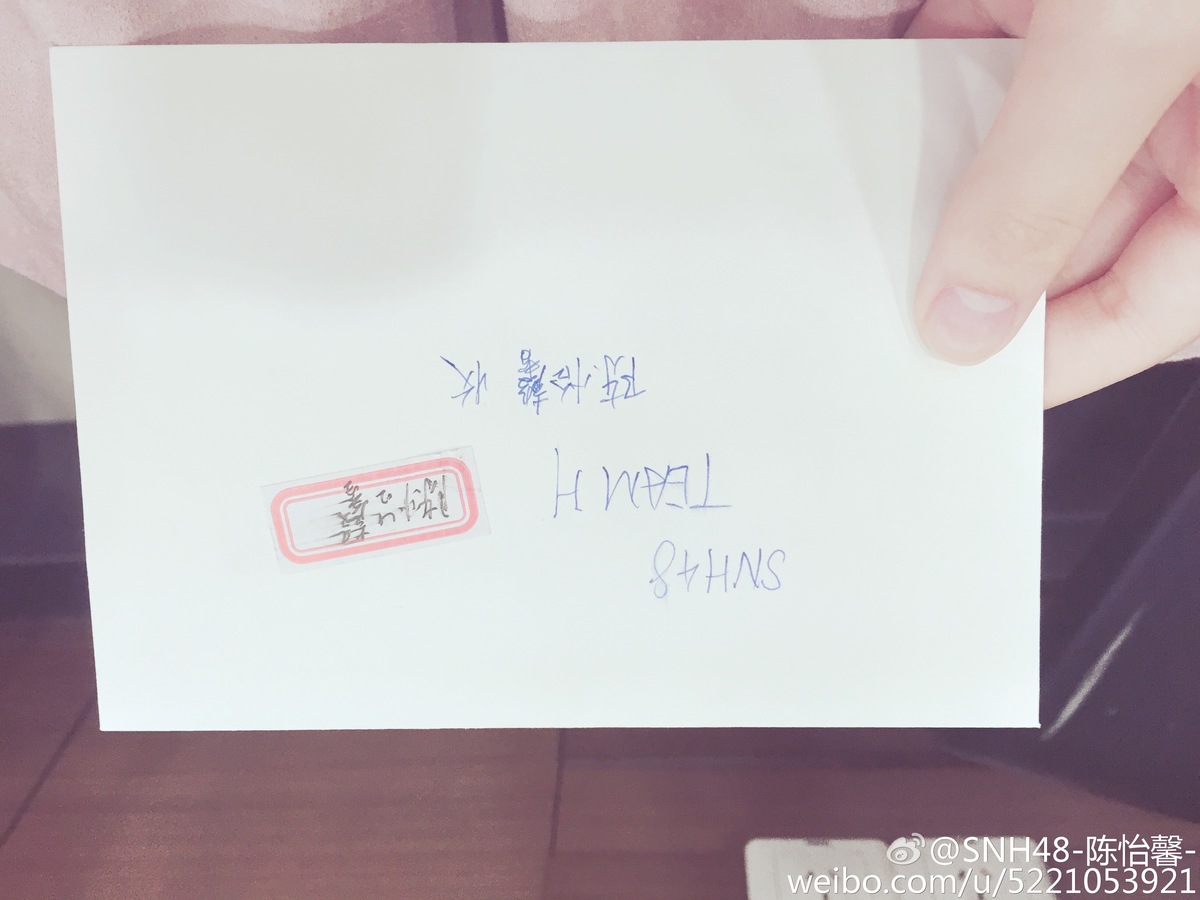 SNH48
TEAM H
陈怡馨 收
陈怡馨
@SNH48-陈怡馨-
weibo.com/u/5221053921